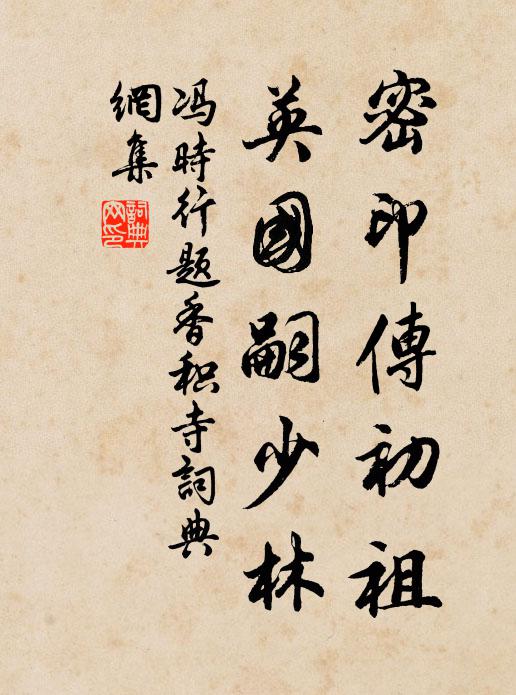 密印傳初祖
英國嗣少林
冯時行题香积寺詞典
網集
詞典
网印